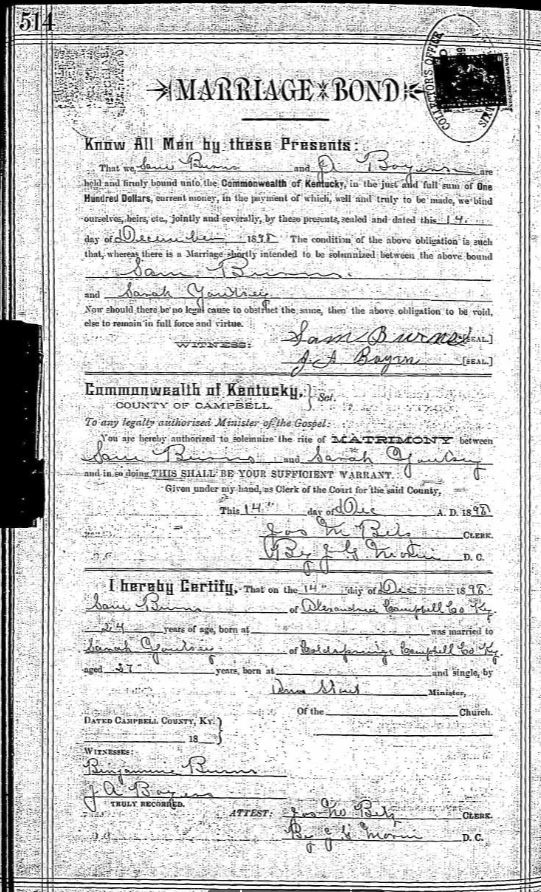 514
COLLECTOR'S OFFICE
MARRIAGE BOND
Know All Men by these Presents:
That we, Sam Burns and J A are
held and firmly bound unto the Commonwealth of Kentucky, in the just and full sum of One
Hundred Dollars, current money, in the payment of which, well and truly to be made, we bind
ourselves, heirs, etc., jointly and severally, by these presents, sealed and dated this 14
day of December 1898 The condition of the above obligation is such
that, whereas there is a Marriage shortly intended to be solemnized between the above bound
Sam Burns
and Sarah Youtsey
Now should there be no legal cause to obstruct the same, then the above obligation to be void,
else to remain in full force and virtue.
WITNESS: Sam Burns [SEAL.]
J. A [SEAL.]
Commonwealth of Kentucky, } Sct.
COUNTY OF CAMPBELL.
To any legally authorised Minister of the Gospel:
You are hereby authorized to solemnize the rite of MATRIMONY between
Sam Burns and Sarah Youtsey
and in so doing THIS SHALL BE YOUR SUFFICIENT WARRANT.
Given under my hand, as Clerk of the Court for the said County,
This 14" day of Dec A. D. 1898
Jos M CLERK.
By J G D. C.
I hereby Certify, That on the 14" day of Dec 1898
Sam Burns of Alexandria Campbell Co Ky.
24 years of age, born at was married to
Sarah Youtsey of Coldspring Campbell Co Ky.
aged 27 years, born at and single, by
Minister,
Of the Church.
DATED CAMPBELL COUNTY, KY.
18
WITNESSES:
Benjamine Burns
J A
TRULY RECORDED.
ATTEST: Jos M CLERK.
By J G D. C.